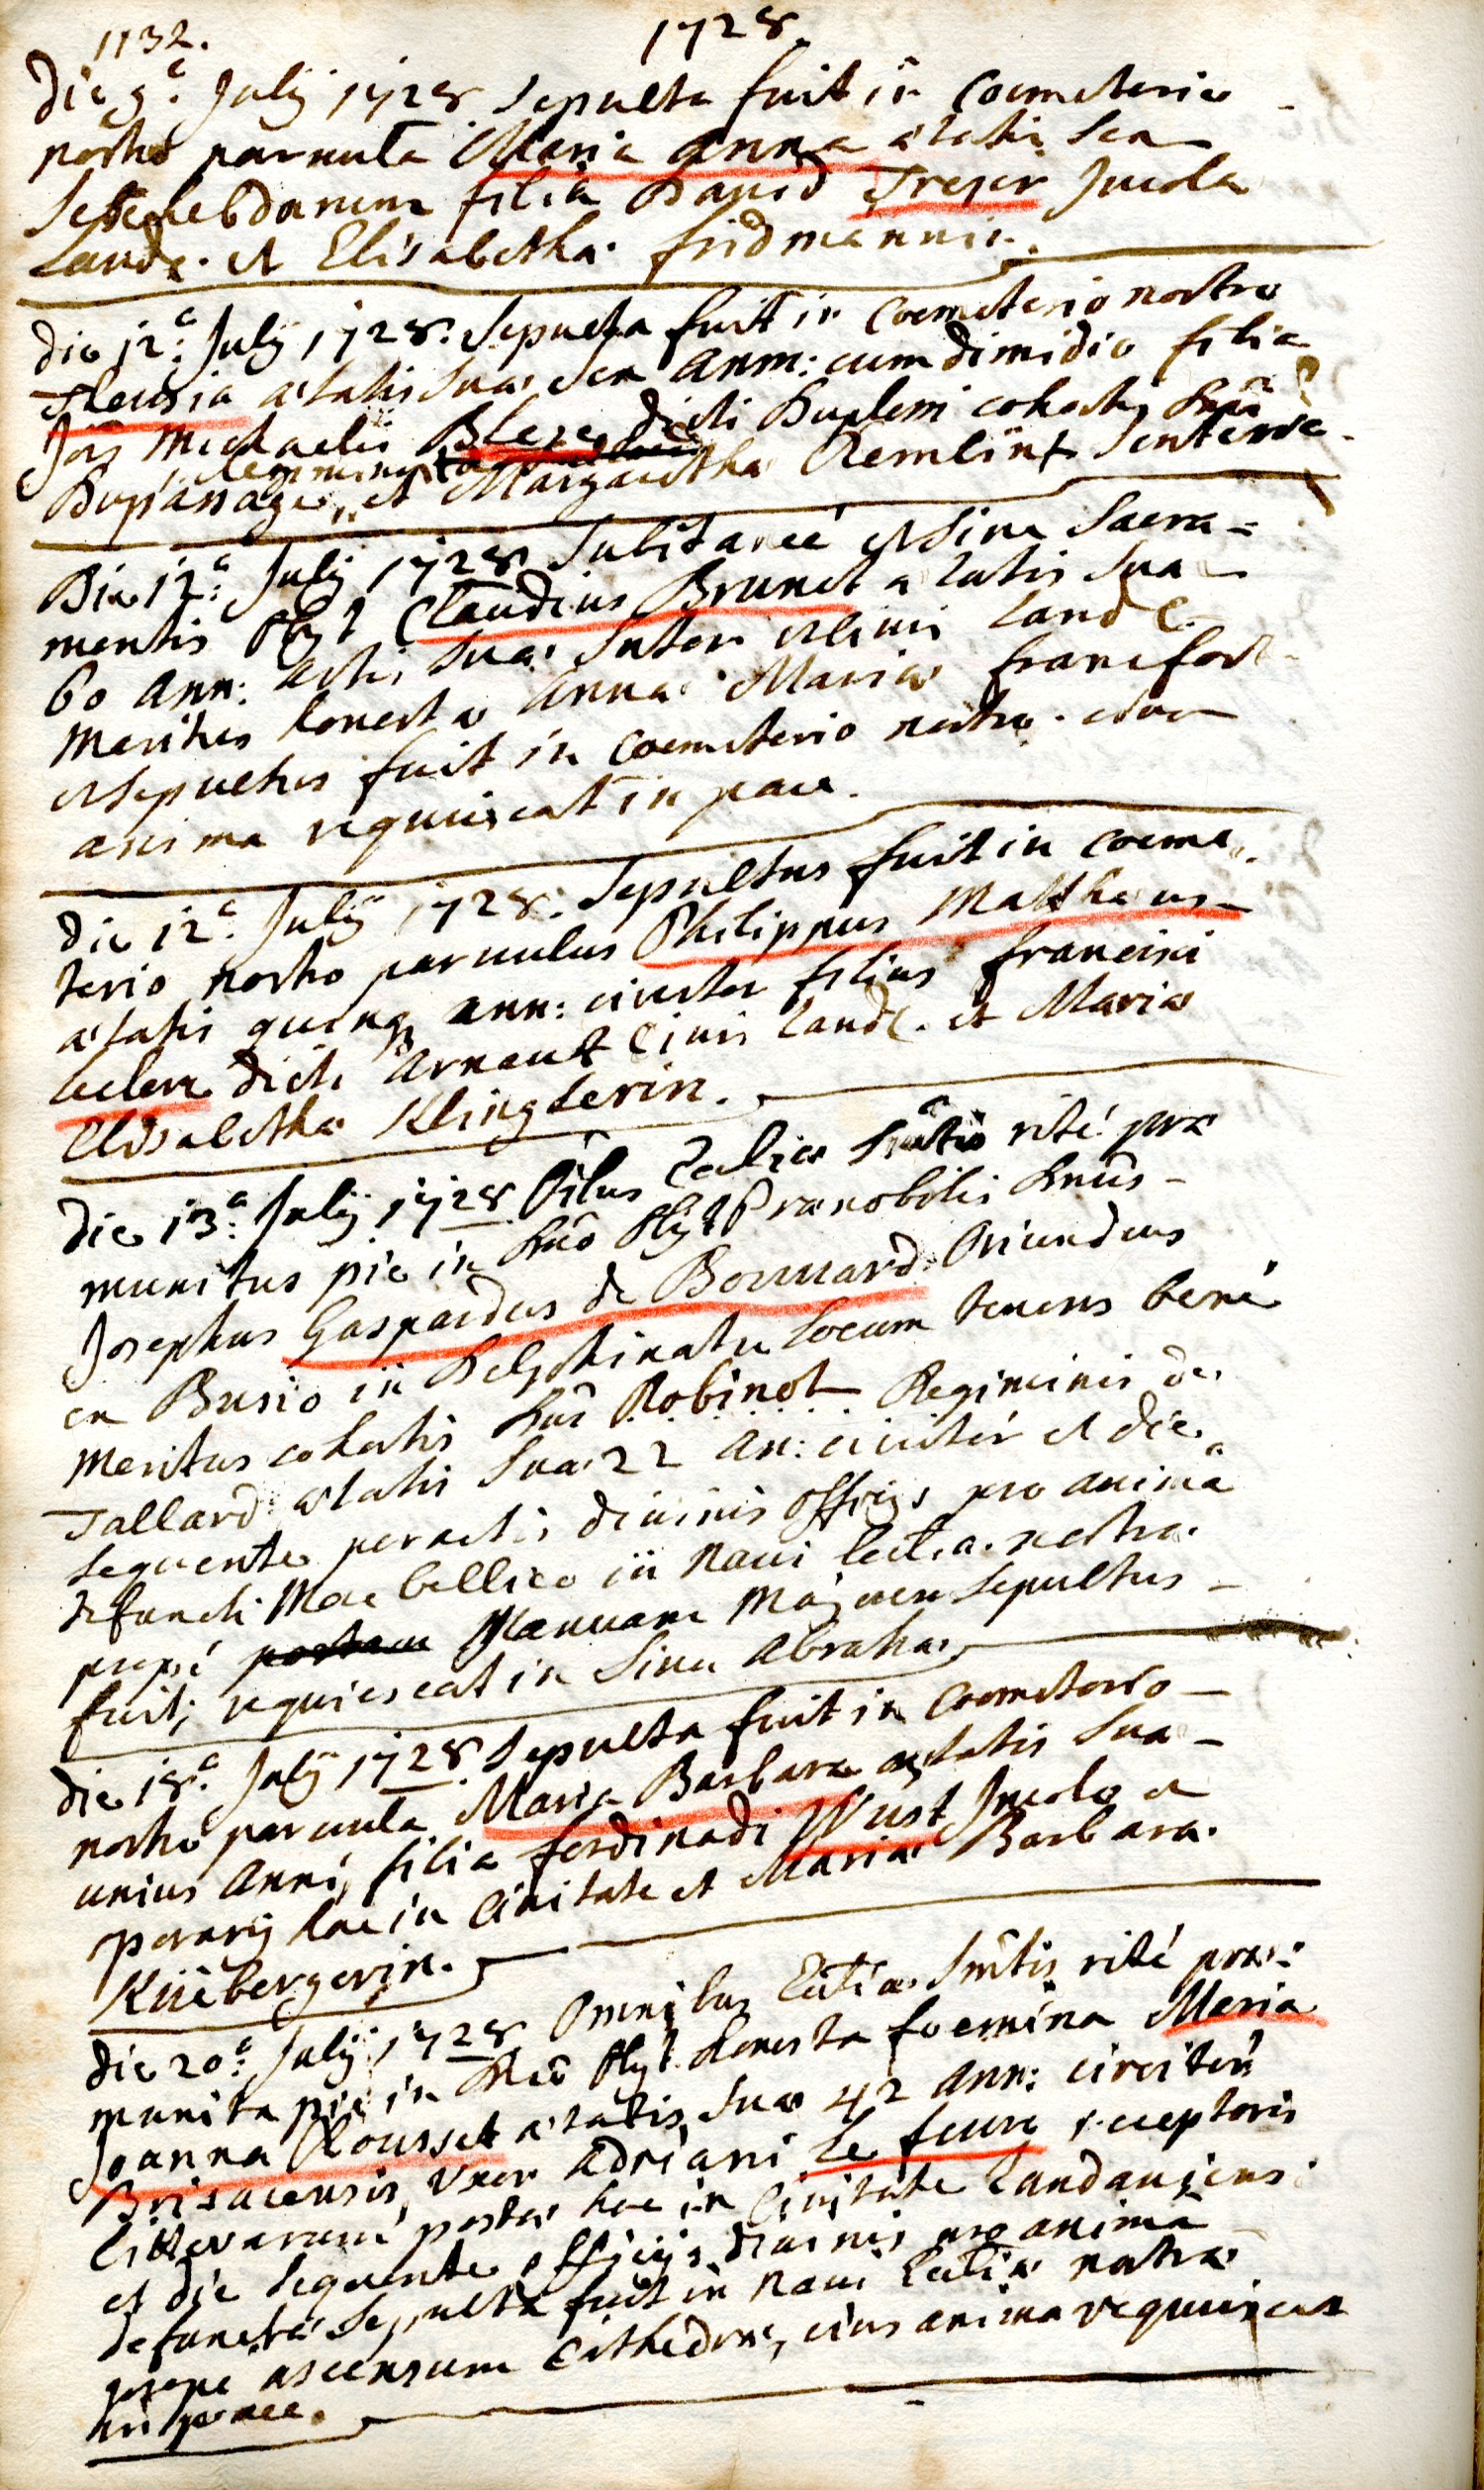 1132. 1728.
Die 9ª. Julij 1728 Sepulta fuit in Coemeterio
nostro parvula Maria Anna ætatis sex
Septe hebdomem filia David Treser Incola
Landæ. et Elisabetha fridmannin.
die 12ª. Julij 1728. Sepulta fuit in Coemeterio nostro
ætatis suæ sex ann: cum dimidio filia
Jois Michaelis dicti cohortis
et Margaretha Remlin
Die 12ª. Julij 1728 Subitanee et sine Sacra-
mentis Obijt Claudius Brunet ætatis suæ
60 ann: artis suæ Sutor et Civis Landæ.
Maritus honestæ Anna Maria francfort
et sepultus fuit in Coemeterio nostro.
anima requiescat in pace.
die 12ª. Julij 1728. Sepultus fuit in Coeme-
terio nostro parvulus Philippus Matthæus
ætatis quinq ann: circiter filius francisci
dicti Arnaut Civis Landæ. et Maria
Elisabetha Klinglerin.
die 13ª. Julij 1728 Oibus Ecclia Sm̃tis rité præ
munitus pie in Dño Obijt Prænobilis Dnūs
Josephus Gaspardus de Bonnard Oriundus
ex Busio in Delphinatu Locum tenens bené
Meritus cohortis Dñi Robinot Regiminis de
Tallard ætatis suæ 22 an: circitér et die
sequente peractis divinis officijs pro animâ
defuncti More bellico in Navi Eccliæ nostræ
propé portam Januam Majorem Sepultus
fuit; requiescat in Sinu Abrahæ.
die 18ª. Julij 1728. Sepulta fuit in Coemeterio
nostro parvula Maria Barbara ætatis suæ
unius Anni, filia ferdinadi Wust Incola et
operarij hac in Civitate et Mariæ Barbara.
Küebergerin.
die 20ª. Julij 1728 Omnibus Eccliæ Sm̃tis rité præ-
munita pie in Dño Obijt honesta foemina Maria
Joanna Rousset ætatis suæ 42 Ann: circitér
Brisacensis, Uxor Adriani le feuvre receptoris
litterarum postæ hac in Civitate Landaviensi
et die sequente officijs divinis pro animâ
defunctæ Sepulta fuit in Navi Eccliæ nostræ
prope ascensum Cathedræ, eius anima requiescat
in pace.